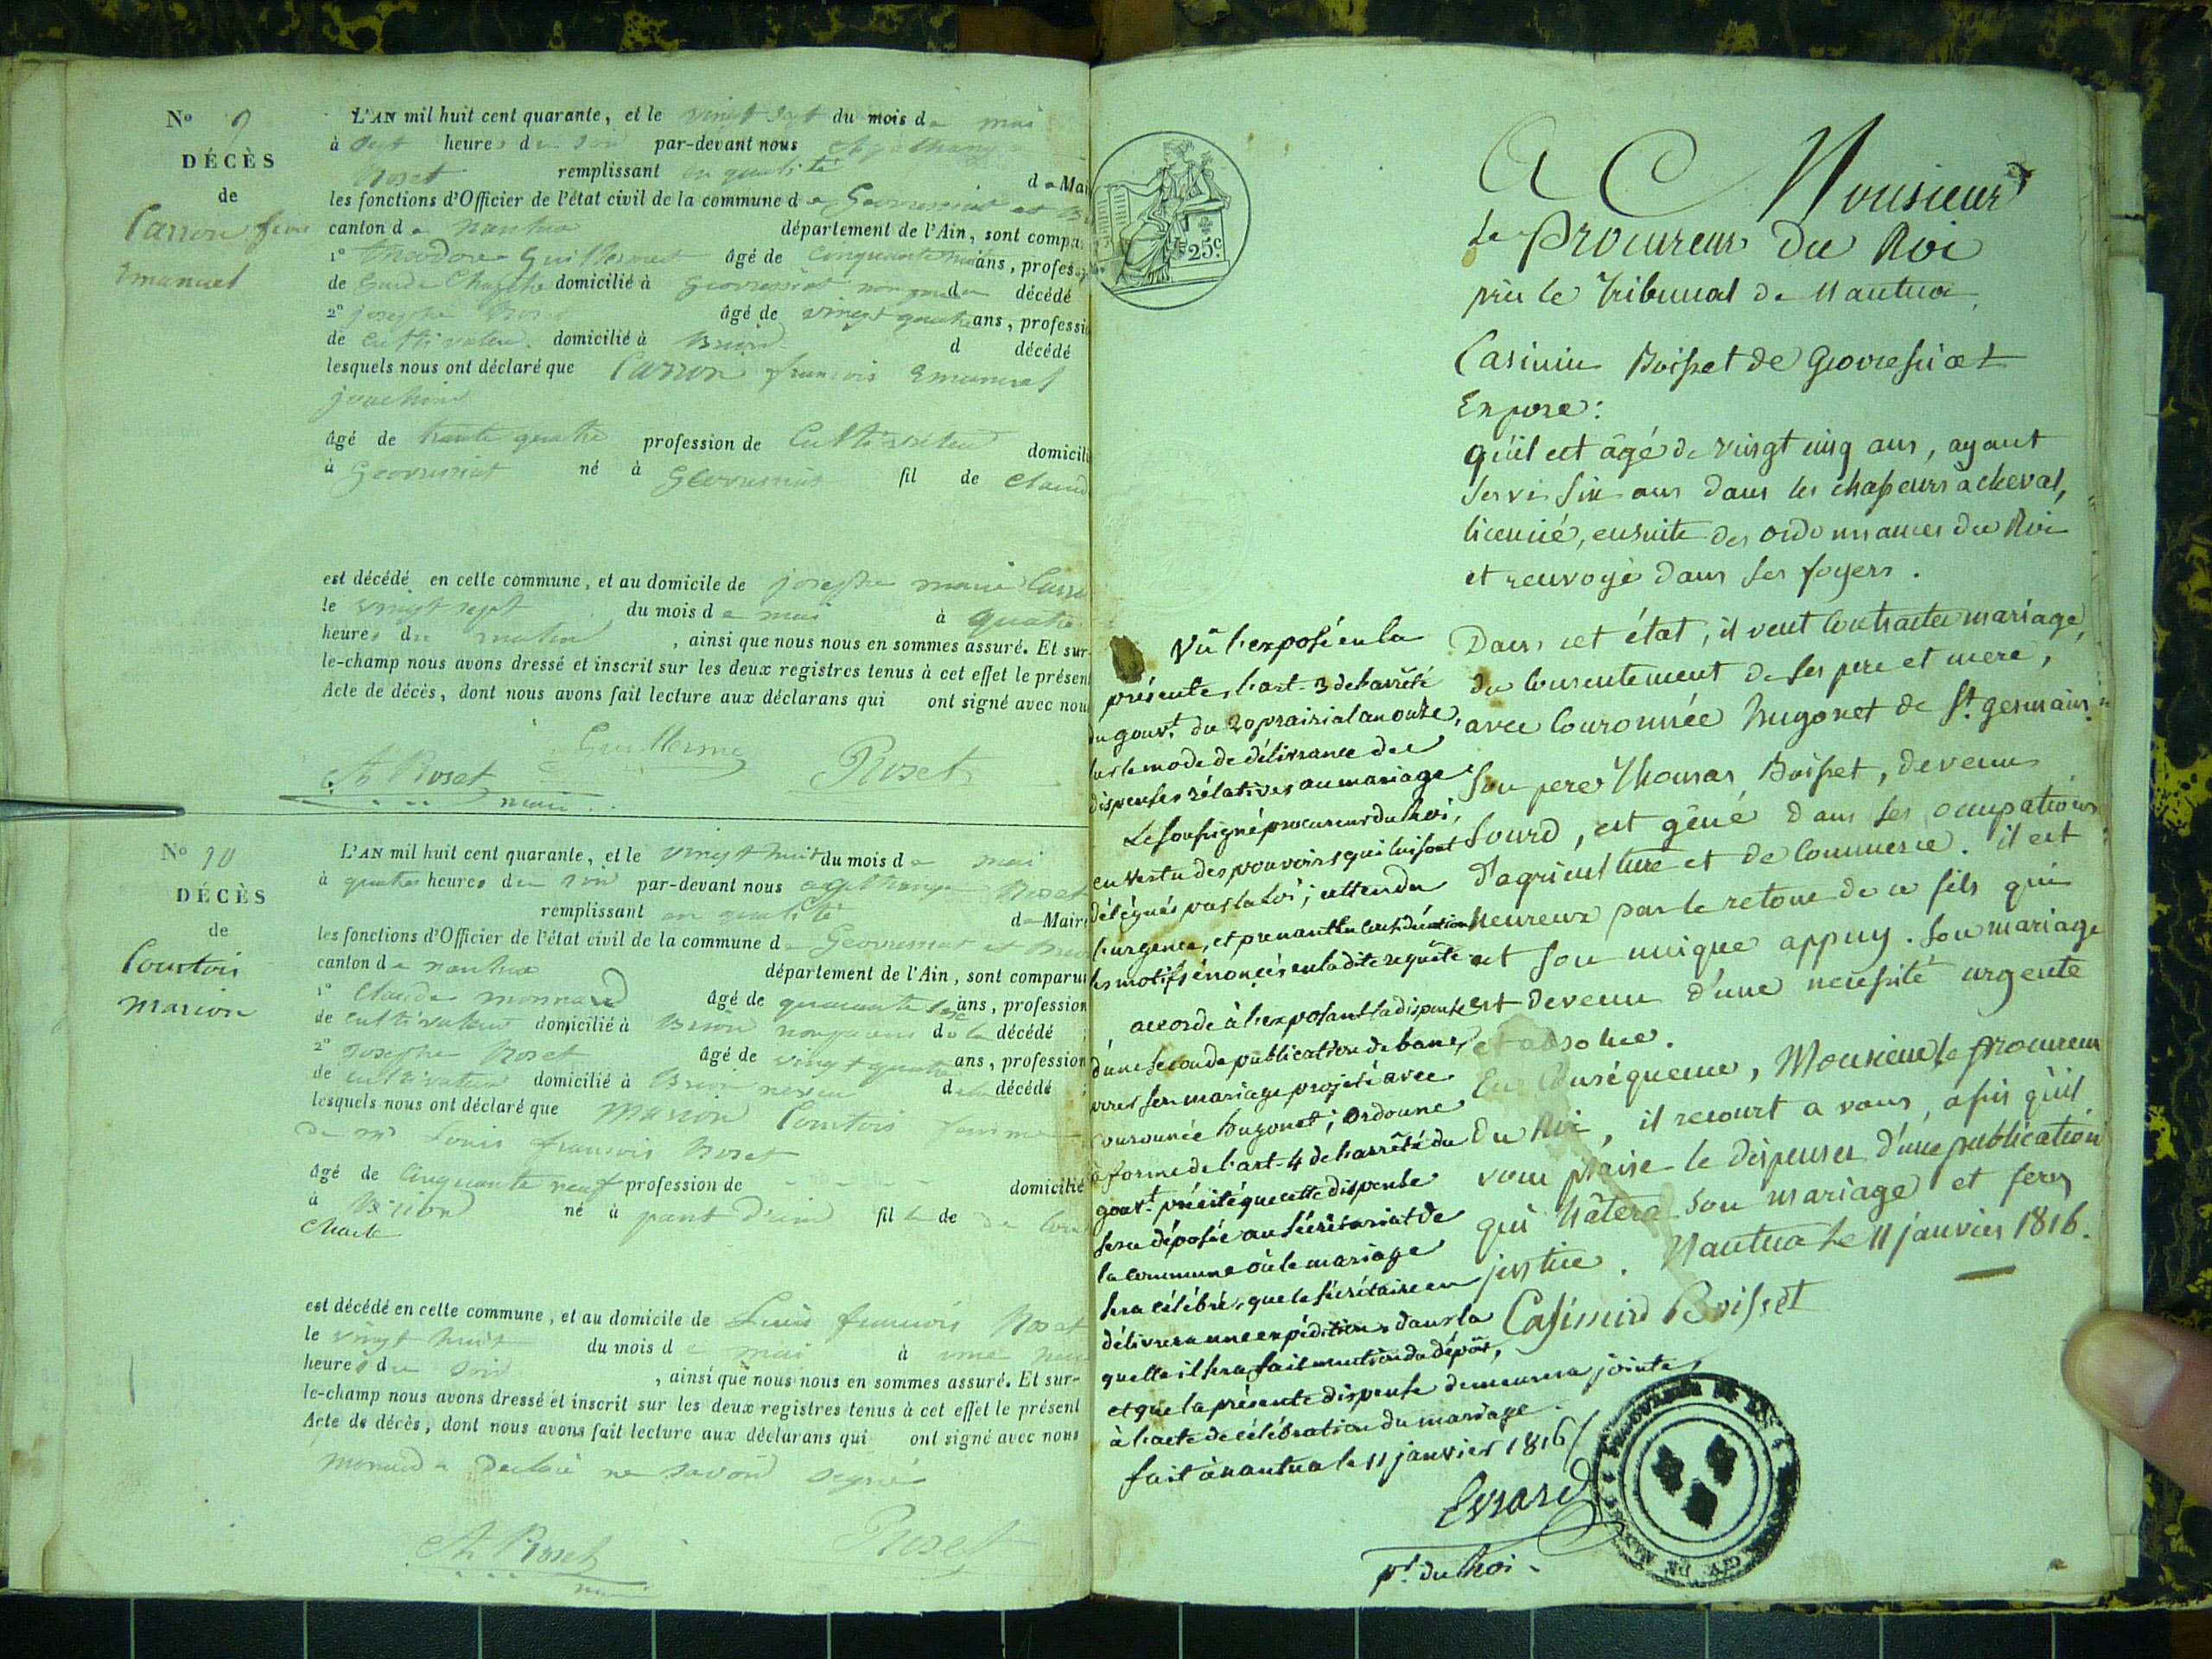 No 9
DÉCÈS
de
Carron
Emanuel
L'AN mil huit cent quarante, et le vingt sept du mois de mai
à sept heures du soir par-devant nous
Roset remplissant en qualité de Mai
les fonctions d'Officier de l'état civil de la commune de Geovressiat et
canton de nantua département de l'Ain, sont compa
1° théodore Guillermet âgé de Cinquante ans, profes
de Garde Champêtre domicilié à Geovressiat décédé
2° josephe Roset âgé de vingt quatre ans, professi
de Cultivateur domicilié à Brion d décédé
lesquels nous ont déclaré que Carron françois Emanuel
joachim
âgé de trante quatre profession de Cultivateur domicili
à Geovressiat né à Geovressiat fil de Claud
est décédé en cette commune, et au domicile de josephe marie Carro
le vingt sept du mois de mai à quatre
heures du matin, ainsi que nous nous en sommes assuré. Et sur-
le-champ nous avons dressé et inscrit sur les deux registres tenus à cet effet le présent
Acte de décès, dont nous avons fait lecture aux déclarans qui ont signé avec nou
Guillerme
Roset maire Roset
No 10
DÉCÈS
de
Courtois
Marion
L'AN mil huit cent quarante, et le vingt huit du mois de mai
à quatre heures du soir par-devant nous Roset
remplissant en qualité de Maire
les fonctions d'Officier de l'état civil de la commune de Geovressiat et Brion
canton de nantua département de l'Ain, sont comparus
1° Claude monnard âgé de quarante ans, profession
de cultivateur domicilié à Brion de la décédé
2° Josephe Roset âgé de vingt quatre ans, profession
de cultivateur domicilié à Brion neveu de la décédé
lesquels nous ont déclaré que Marion Courtois femme
de mr Louis françois Roset
âgé de Cinquante neuf profession de domicilié
à Brion né à pont d'ain fil le de
Charle
est décédé en cette commune, et au domicile de Louis françois Roset
le vingt huit du mois de mai à une
heures du soir, ainsi que nous nous en sommes assuré. Et sur-
le-champ nous avons dressé et inscrit sur les deux registres tenus à cet effet le présent
Acte de décès, dont nous avons fait lecture aux déclarans qui ont signé avec nous
declaré ne savoir signé
Roset Roset
25c.
A Monsieur
Le Procureur du Roi
près le Tribunal de Nantua
Casimir Boisset de Geovresiat
Expose:
qu'il est âgé de vingt cinq ans, ayant
servi six ans dans les chasseurs à cheval,
licencié, ensuite des ordonnances du Roi
et renvoyé dans ses foyers.
Dans cet état, il veut contracter mariage,
du consentement de ses pere et mere,
avec Couronnée hugonet de St germain.
Son pere Thomas Boisset, devenu
sourd, est géné dans ses occupations
d'agriculture et de commerce. il est
heureux par le retour de ce fils qui
est son unique appuy. Son mariage
est devenu d'une necessité urgente
et absolue.
En Conséquence, Monsieur le procureur
du Roi, il recourt a vous, afin qu'il
vous plaise le dispenser d'une publication
qui hâtera son mariage et ferez
justice. Nantua le 11 janvier 1816.
Casimird Boisset
Vû l'exposé en la
présente, l'art. 3 de l'arrêté
du gouvt. du 20 prairial an onze,
sur le mode de délivrance des
dispenses rélatives au mariage
Le soussigné procureur du Roi,
en vertu des pouvoirs qui lui sont
délégués par la Loi; attendu
l'urgence, et prenant en considération
les motifs énoncés en la dite requête
accorde à l'exposant la dispense
d'une seconde publication de bans,
pour son mariage projeté avec
Couronnée hugonet; Ordonne
à forme de l'art. 4 de l'arrêté du
gouvt. précité que cette dispense
sera déposée au sécrétariat de
la commune où le mariage
sera célébré, que le sécrétaire en
délivrera une expédition, dans la
quelle il sera fait mention du dépôt,
et que la présente dispense demeurera jointe
à l'acte de célébration du mariage.
fait à nantua le 11 janvier 1816
Evrard
pr. du Roi.